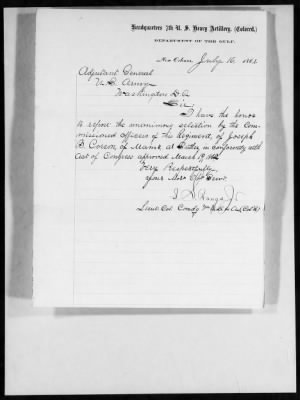 Headquarters 7th U. S. Heavy Artillery, (Colored,)
DEPARTMENT OF THE GULF.
July 16, 186
Adjutant General
U. S. Army
Washington D.C.
Sir
I have the honor
to the unanimous selection by the Com-
missioned Officers of the Regiment, of Joseph
B. of Maine as in conformity with
Act of Congress approved March
Very Respectfully
your Obt Servt
Lieut Col. Comdg